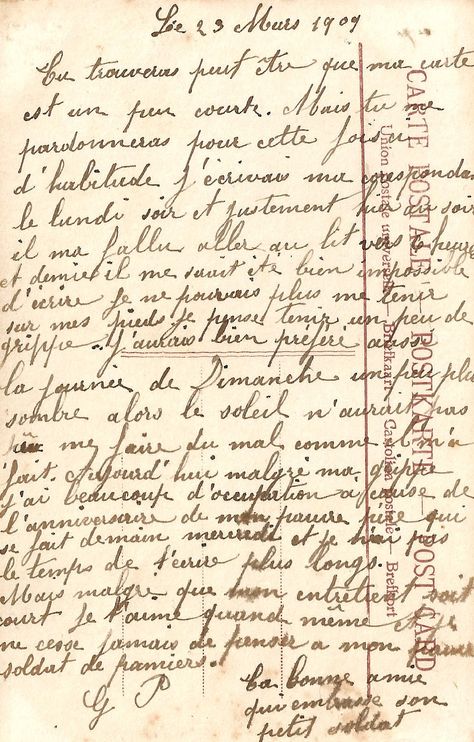 Le 23 Mars 1909
Tu trouveras peut être que ma carte
est un peu courte. Mais tu me
pardonneras pour cette fois ci
d'habitude j'écrivais ma correspondan
le lundi soir et justement hier au soir
il ma fallu aller au lit vers 6 heure
et demie il me serait été bien impossible
d'écrire je ne pouvais plus me tenir
sur mes pieds je pense tenir un peu de
grippe. J'aurais bien préféré aussi
la journée de Dimanche un peu plus
sombre alors le soleil n'aurait pas
pu me faire du mal comme il m'a
fait. Aujourd'hui malgré ma grippe
j'ai beaucoup d'occupation a cause de
l'anniversaire de mon pauvre père qui
se fait demain mercredi et je n'ai pas
le temps de t'écrire plus longs.
Mais malgré que mon entretient soit
court je t'aime quand même et je
ne cesse jamais de penser a mon pauvre
soldat de pamiers.
G P
Ta bonne amie
qui embrasse son
petit soldat
CARTE POSTALE — POSTKARTE — POST CARD
Union postale universelle — Briefkaart — Cartolina postale — Brefkort